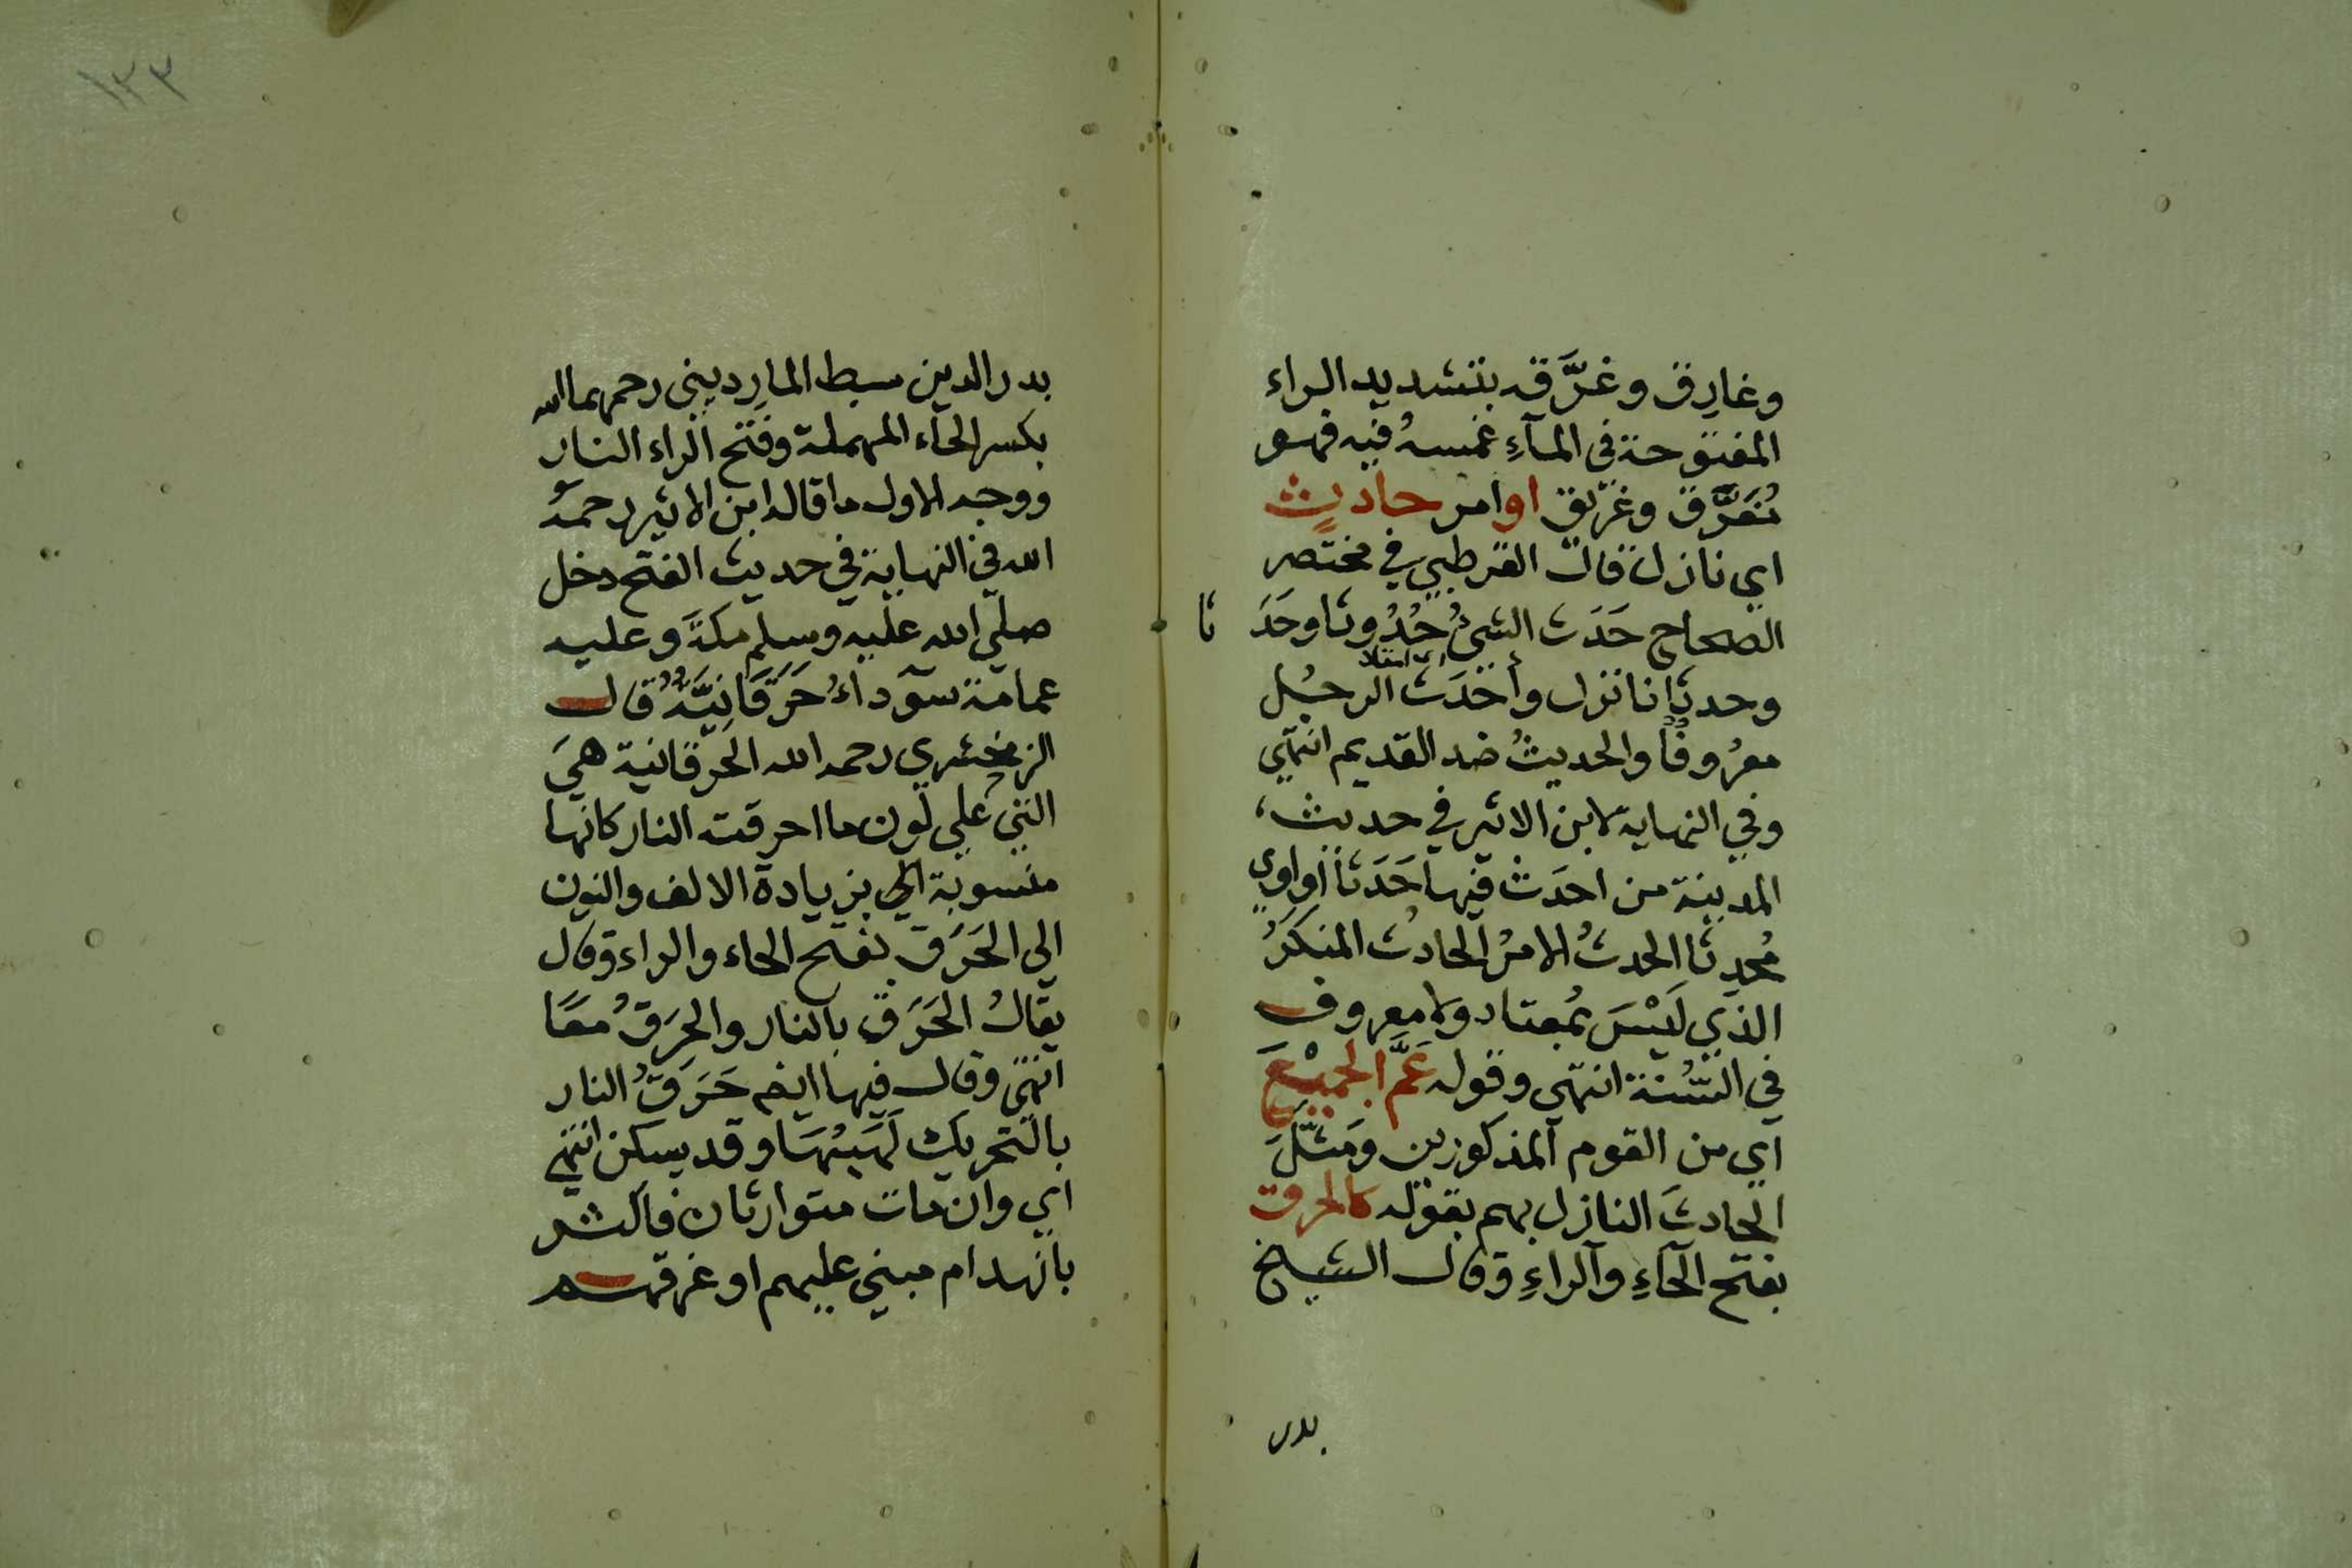 وغارق وغَرَّقه بتشديد الراء
المفتوحة في المآءِ غمسهُ فيه فهو
مُغَرَّق وغريق او امر حادثٍ
اي نازل قال القرطبي في مختصر
الصحاح حَدَث الشئُ حُدُوثا وحَدَثا
وحدثانا نزل وأحْدَث الرجُل
اي ابتدا
معرُوفًا والحديثُ ضد القديم انتهي
وفي النهاية لابن الاثير في حديث
المدينة من احدَث فيها حَدَثًا او اوي
مُحدِثا الحدثُ الامرُ الحادث المنكَرُ
الذي لَيْسَ بمُعتاد ولا معروف
في السُّنة انتهي وقوله عَمَّ الجميْعَ
اي من القوم المذكورين ومَثَّلَ
الحادثَ النازل بهم بقوله كالحرق
بفتح الحآءِ والراءِ وقال الشيخ
بدر
١٣٣
بدر الدين سبط المارديني رحمهما الله
بكسر الحآء المهملة وفتح الراء النار
ووجه الاول ما قاله ابن الاثير رحمهُ
الله في النهاية في حديث الفتح دخل
صلي الله عليه وسلم مكةَ وعليه
عمامة سودآءُ حَرَقَانِيَّةٌ قال
الزمخشري رحمه الله الحَرقانية هيَ
التي علي لون ما احرقته النار كانها
منسوبة الي بزيادة الالف والنون
الي الحَرَق بفتح الحاء والراء وقال
يقالُ الحَرَق بالنار والحِرَقُ معًا
انتهي وقال فيها ايضا حَرَقُ النار
بالتحريك لَهَبُهَا وقد يسكن انتهي
اي وان مات متوارثان فاكثر
بانهدام مبني عليهم او غرقهم